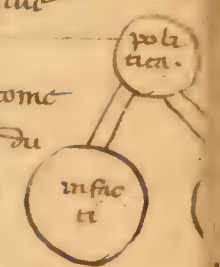 politica.
come
du
in fac
ti